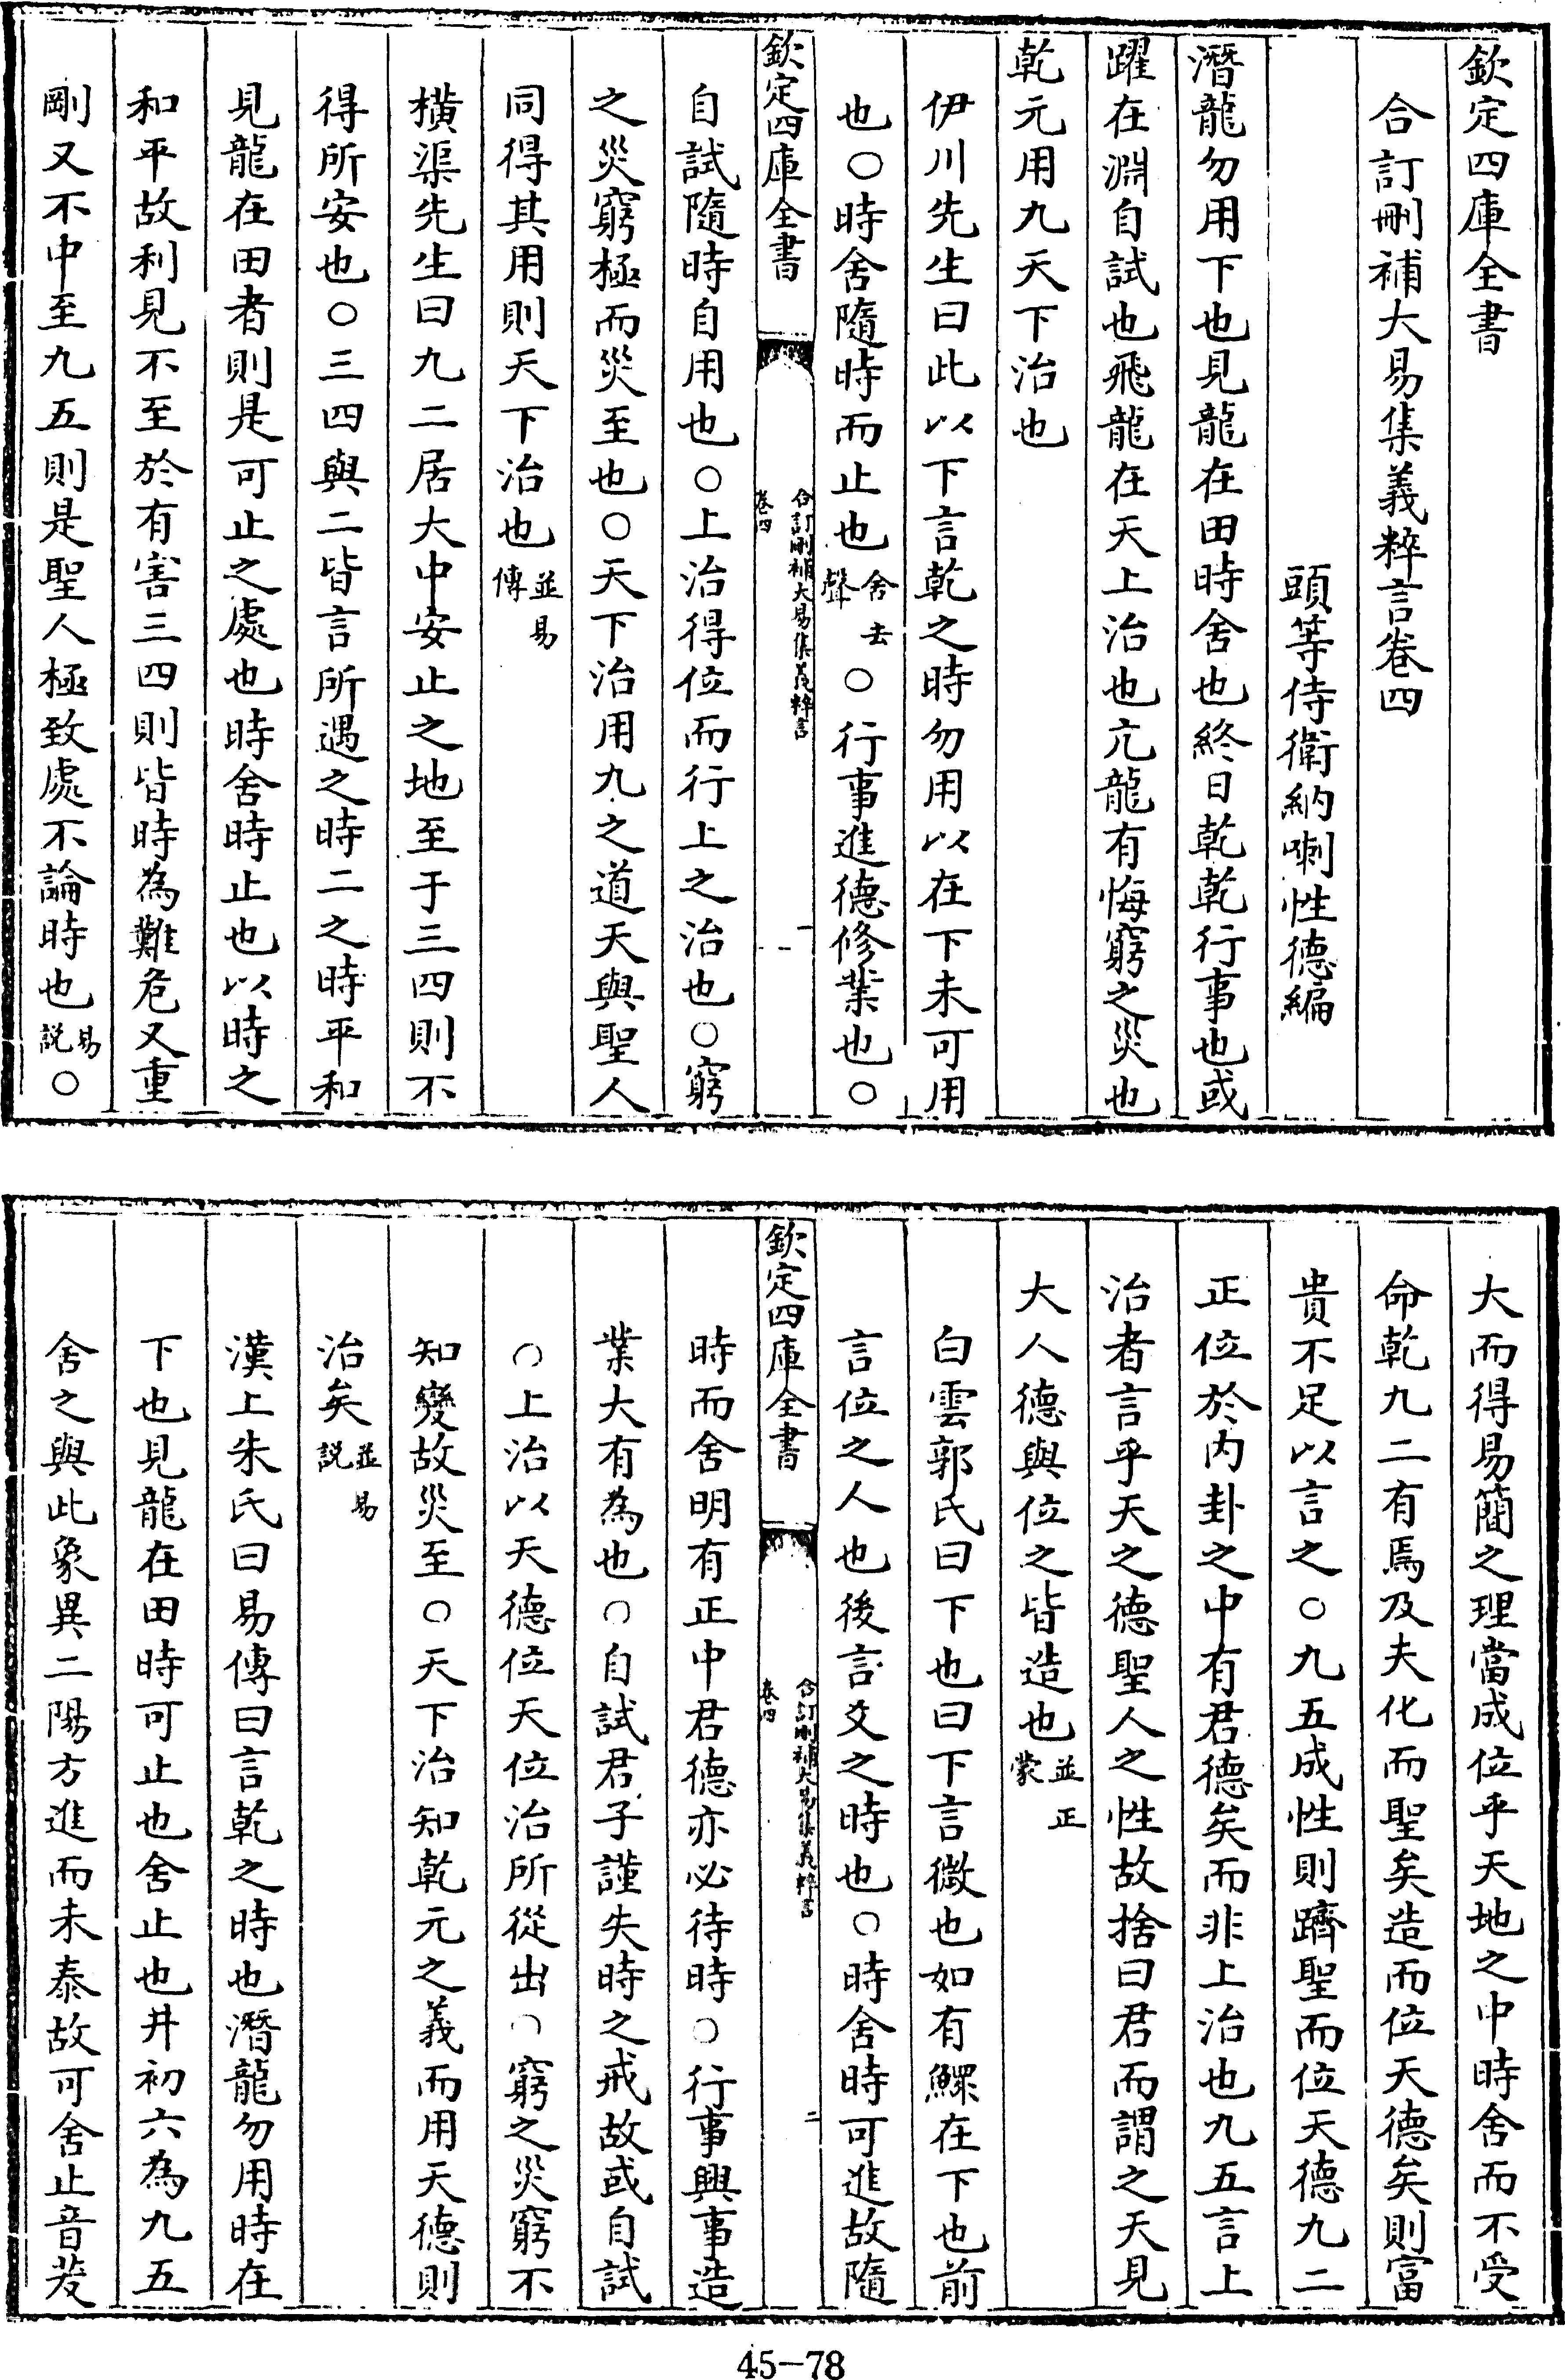 欽定四庫全書
合訂刪補大易集義粹言卷四
頭等侍衛納喇性德編
潛龍勿用下也見龍在田時舍也終日乾乾行事也或
躍在淵自試也飛龍在天上治也亢龍有悔窮之災也
乾元用九天下治也
伊川先生曰此以下言乾之時勿用以在下未可用
也〇時舍隨時而止也舍去聲〇行事進德修業也〇
欽定四庫全書
合訂刪補大易集義粹言
卷四
一
自試隨時自用也〇上治得位而行上之治也〇窮
之災窮極而災至也〇天下治用九之道天與聖人
同得其用則天下治也並易傳
橫渠先生曰九二居大中安止之地至于三四則不
得所安也〇三四與二皆言所遇之時二之時平和
見龍在田者則是可止之處也時舍時止也以時之
和平故利見不至於有害三四則皆時為難危又重
剛又不中至九五則是聖人極致處不論時也易說〇
大而得易簡之理當成位乎天地之中時舍而不受
命乾九二有焉及夫化而聖矣造而位天德矣則富
貴不足以言之〇九五成性則躋聖而位天德九二
正位於內卦之中有君德矣而非上治也九五言上
治者言乎天之德聖人之性故捨曰君而謂之天見
大人德與位之皆造也並正蒙
白雲郭氏曰下也曰下言微也如有鰥在下也前
言位之人也後言爻之時也〇時舍時可進故隨
欽定四庫全書
合訂刪補大易集義粹言
卷四
二
時而舍明有正中君德亦必待時〇行事興事造
業大有為也〇自試君子謹失時之戒故或自試
〇上治以天德位天位治所從出〇窮之災窮不
知變故災至〇天下治知乾元之義而用天德則
治矣並易說
漢上朱氏曰易傳曰言乾之時也潛龍勿用時在
下也見龍在田時可止也舍止也井初六為九五
舍之與此象異二陽方進而未泰故可舍止音茇
45-78